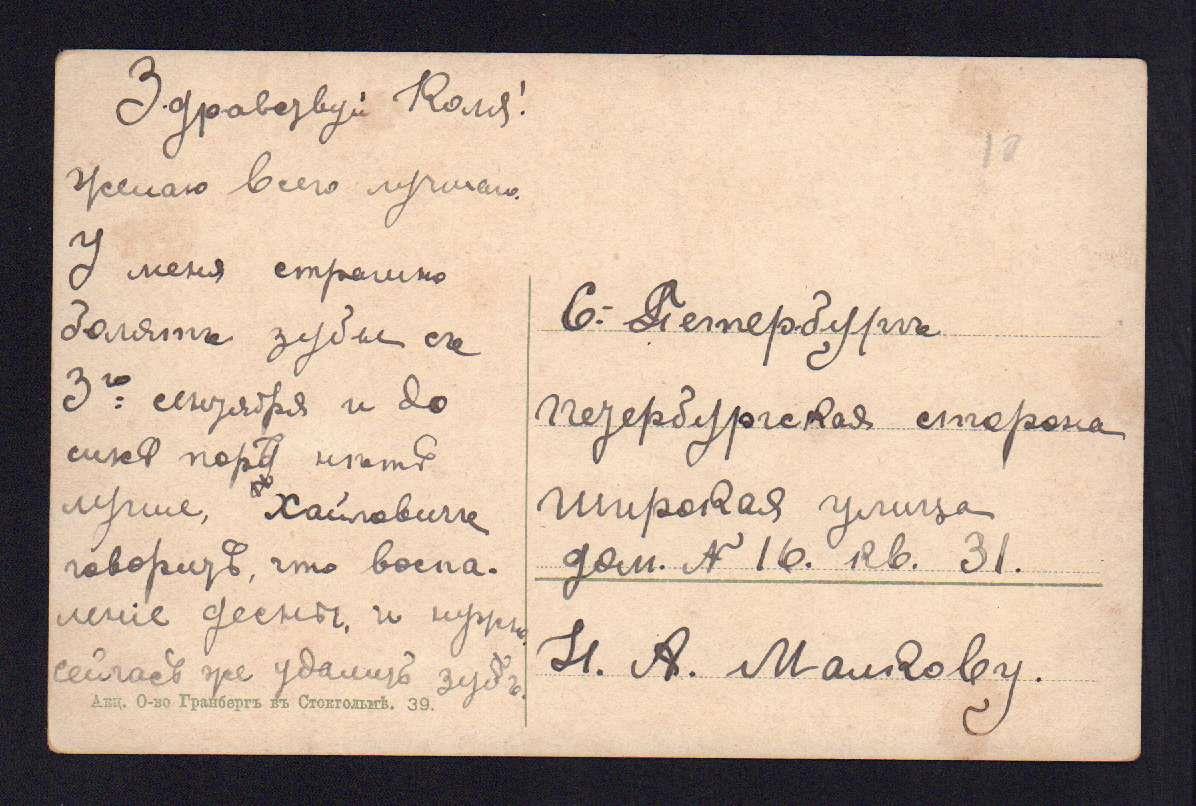 Здравствуй Коля!
Желаю всего лучшаго.
У меня страшно
болятъ зубы съ
3го сентября и до
сихъ поръ нѣтъ
лучше, Хайловичъ
говоритъ, что воспа-
леніе десны, и нужно
сейчасъ же удалить зубъ.
Акц. О-во Гранбергъ въ Стокгольмѣ. 39.
10
С.-Петербургъ
Петербургская сторона
Широкая улица
дом. № 16. кв. 31.
Н. А. Малкову.